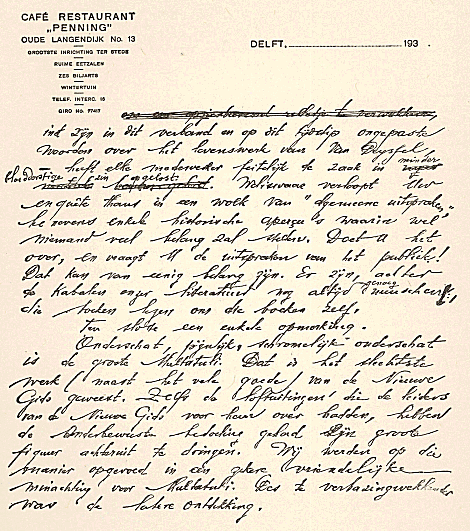 CAFÉ RESTAURANT
„PENNING”
OUDE LANGENDIJK No. 13
GROOTSTE INRICHTING TER STEDE
RUIME EETZALEN
ZES BILJARTS
WINTERTUIN
TELEF. INTERC. 16
GIRO No. 77417
DELFT, 193
een een opzienbarend relletje te verwekken,
int zijn in dit verband en op dit tijdstip ongepaste
woorden over het levenswerk van Van Deyssel
heeft elke medewerker feitelijk de zaak in minder
zin opgelost. Weliswaar verloopt Uw
enquête thans in een wolk van "algemeene uitspraken"
benevens enkele historische aperçu's waarin wel
niemand veel belang zal stellen. Doet U het
over, en vraagt U de uitspraken van het publiek!
Dat kan van eenig belang zijn. Er zijn, achter
de Kabalen onzer literatuur nog altijd genoeg menschen,
die boeken lezen om de boeken zelf.
Ten slotte een enkele opmerking.
Onderschat, pijnlijk, schromelijk onderschat
is de groote Multatuli. Dat is het slechtste
werk, naast het vele goede, van de Nieuwe
Gids geweest. Zelfs de loftuitingen die de leiders
van de Nieuwe Gids voor hem over hadden, hebben
de onderbewuste bedoeling gehad zijn groote
figuur achteruit te dringen. Wij werden op die
manier opgevoed in een zekere vriendelijke
minachting voor Multatuli. Des te verbazingwekkender
was de latere ontdekking.